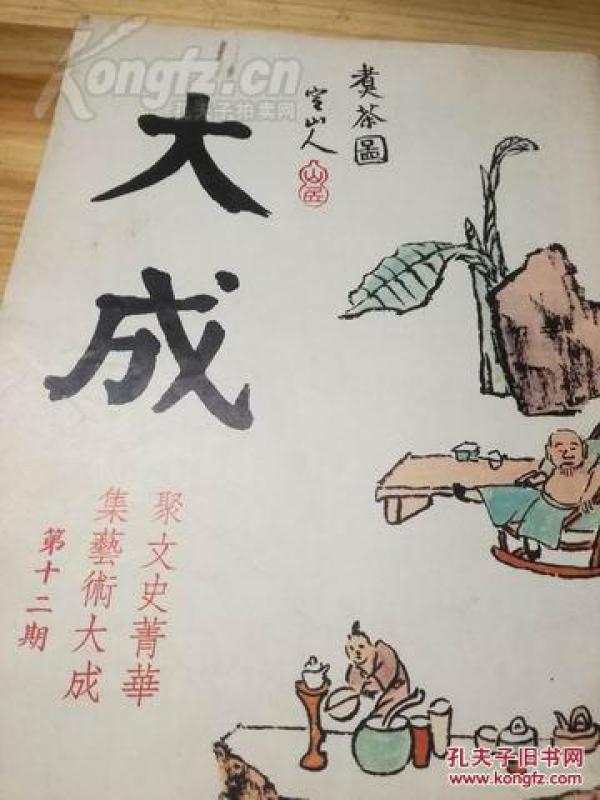 大成
煮茶圖
空山人
山居
聚文史菁華
集藝術大成
第十二期
Kongfz.cn
孔夫子拍卖网
孔夫子旧书网
www.kongfz.com